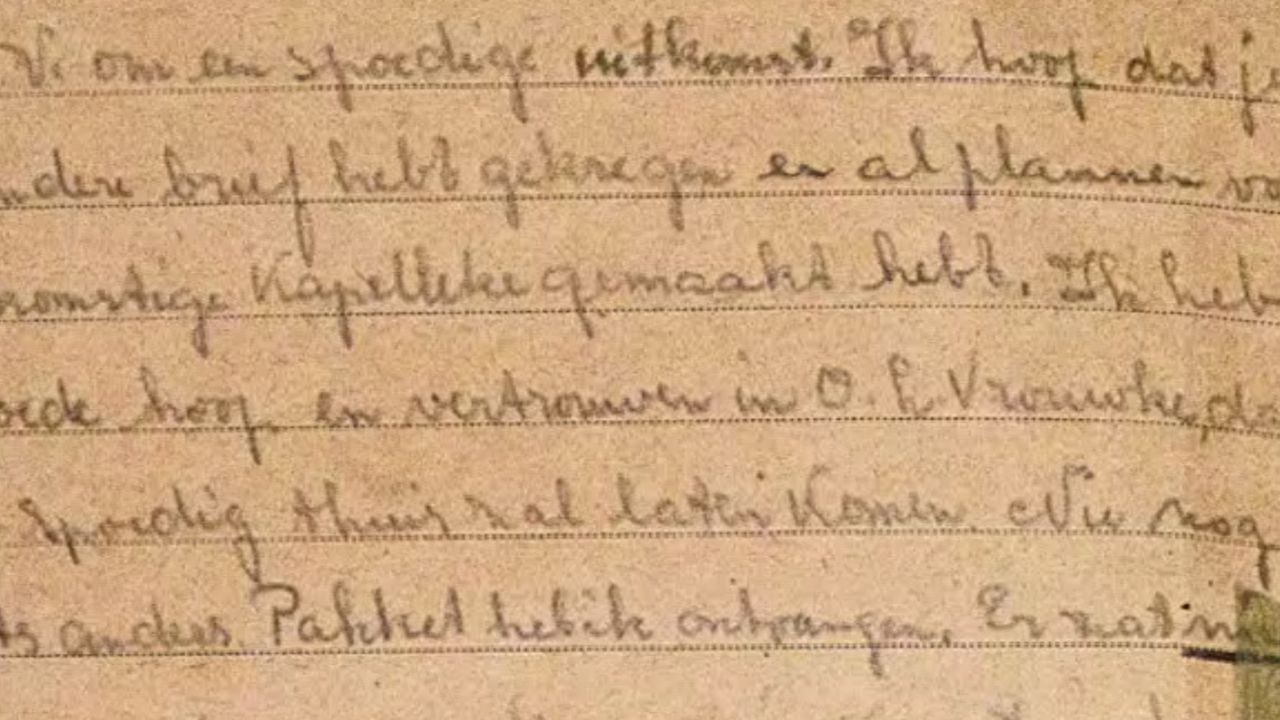 V. om een spoedige uitkomst. Ik hoop dat je
ndere brief hebt gekregen en al plannen vo
komstige Kapelleke gemaakt hebt. Ik heb
oede hoop en vertrouwen in O. L. Vrouwke, da
spoedig thuis zal laten Komen. Nu nog
ts anders. Pakket heb ik ontvangen. Er zat